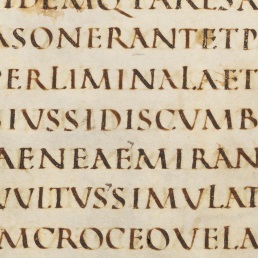 IDEMQPARESA
ASONERANTETP
PERLIMINALAET
SIVSSIDISCVMB
AENEAEMIRAN
IVVLTVSSIMVLAT
MCROCEOVELA